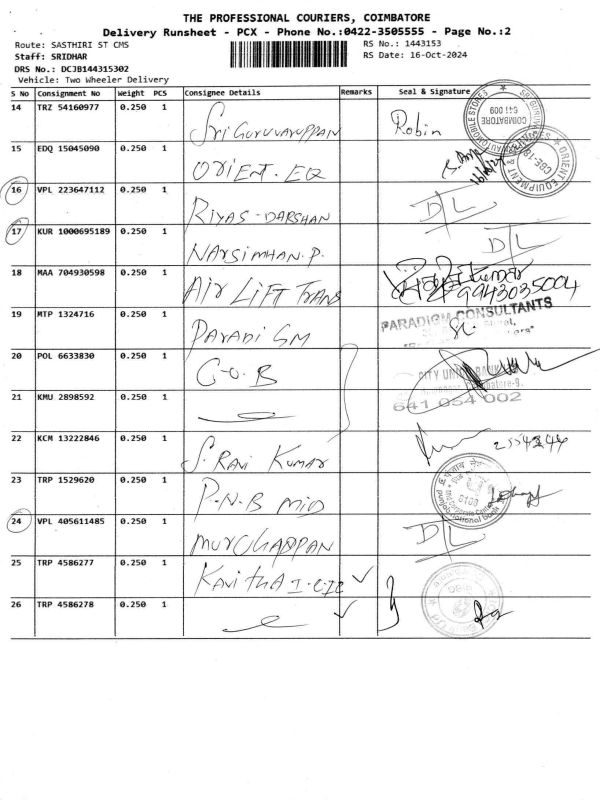 THE PROFESSIONAL COURIERS, COIMBATORE
Delivery Runsheet - PCX - Phone No.:0422-3505555 - Page No.:2
Route: SASTHIRI ST CMS
RS No.: 1443153
Staff: SRIDHAR
RS Date: 16-Oct-2024
DRS No.: DCJB144315302
Vehicle: Two Wheeler Delivery
S No Consignment No Weight PCS Consignee Details Remarks Seal & Signature
14 TRZ 54160977 0.250 1 Sri Guruvaruppan Robin
COIMBATORE 641 009
15 EDQ 15045090 0.250 1 ORIENT. EQ
ORIENT EQUIPMENT & CBE-18
16 VPL 223647112 0.250 1 RIYAS - DARSHAN D/L
17 KUR 1000695189 0.250 1 NARSIMHAN. P. D/L
18 MAA 704930598 0.250 1 AIR LIFT TRANS
9943035004
19 MTP 1324716 0.250 1 PARADI GM
PARADIGM CONSULTANTS
20 POL 6633830 0.250 1 C-O-B
CITY UNION BANK
21 KMU 2898592 0.250 1
641 054 002
22 KCM 13222846 0.250 1 S. RAVI KUMAR
23 TRP 1529620 0.250 1 P.N.B MID
punjab national bank
24 VPL 405611485 0.250 1 MURUGAPPAN D/L
25 TRP 4586277 0.250 1 KAVITHA I.C.I.C
26 TRP 4586278 0.250 1